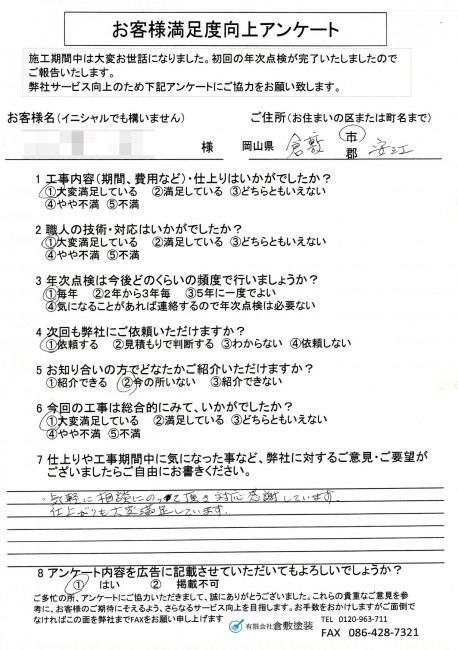 お客様満足度向上アンケート
施工期間中は大変お世話になりました。初回の年次点検が完了いたしましたので
ご報告いたします。
弊社サービス向上のため下記アンケートにご協力をお願い致します。
お客様名(イニシャルでも構いません) ご住所(お住まいの区または町名まで)
様 岡山県 倉敷 市 郡 安江
1 工事内容(期間、費用など)・仕上りはいかがでしたか?
①大変満足している ②満足している ③どちらともいえない
④やや不満 ⑤不満
2 職人の技術・対応はいかがでしたか?
①大変満足している ②満足している ③どちらともいえない
④やや不満 ⑤不満
3 年次点検は今後どのくらいの頻度で行いましょうか?
①毎年 ②2年から3年毎 ③5年に一度でよい
④気になることがあれば連絡するので年次点検は必要ない
4 次回も弊社にご依頼いただけますか?
①依頼する ②見積もりで判断する ③わからない ④依頼しない
5 お知り合いの方でどなたかご紹介いただけますか?
①紹介できる ②今の所いない ③紹介できない
6 今回の工事は総合的にみて、いかがでしたか?
①大変満足している ②満足している ③どちらともいえない
④やや不満 ⑤不満
7 仕上りや工事期間中に気になった事など、弊社に対するご意見・ご要望が
ございましたらご自由にお書きください。
・気軽に相談にのって頂き対応感謝しています。
仕上がりも大変満足しています。
8 アンケート内容を広告に記載させていただいてもよろしいでしょうか?
① はい ② 掲載不可
ご多忙の所、アンケートにご協力いただきまして、誠にありがとうございました。これらの貴重なご意見を参
考に、お客様のご期待にそえるよう、さらなるサービス向上を目指します。お手数をおかけしますがご面倒で
なければこの面を弊社までFAXをお願い申し上げます
有限会社 倉敷塗装 TEL 0120-963-711
FAX 086-428-7321